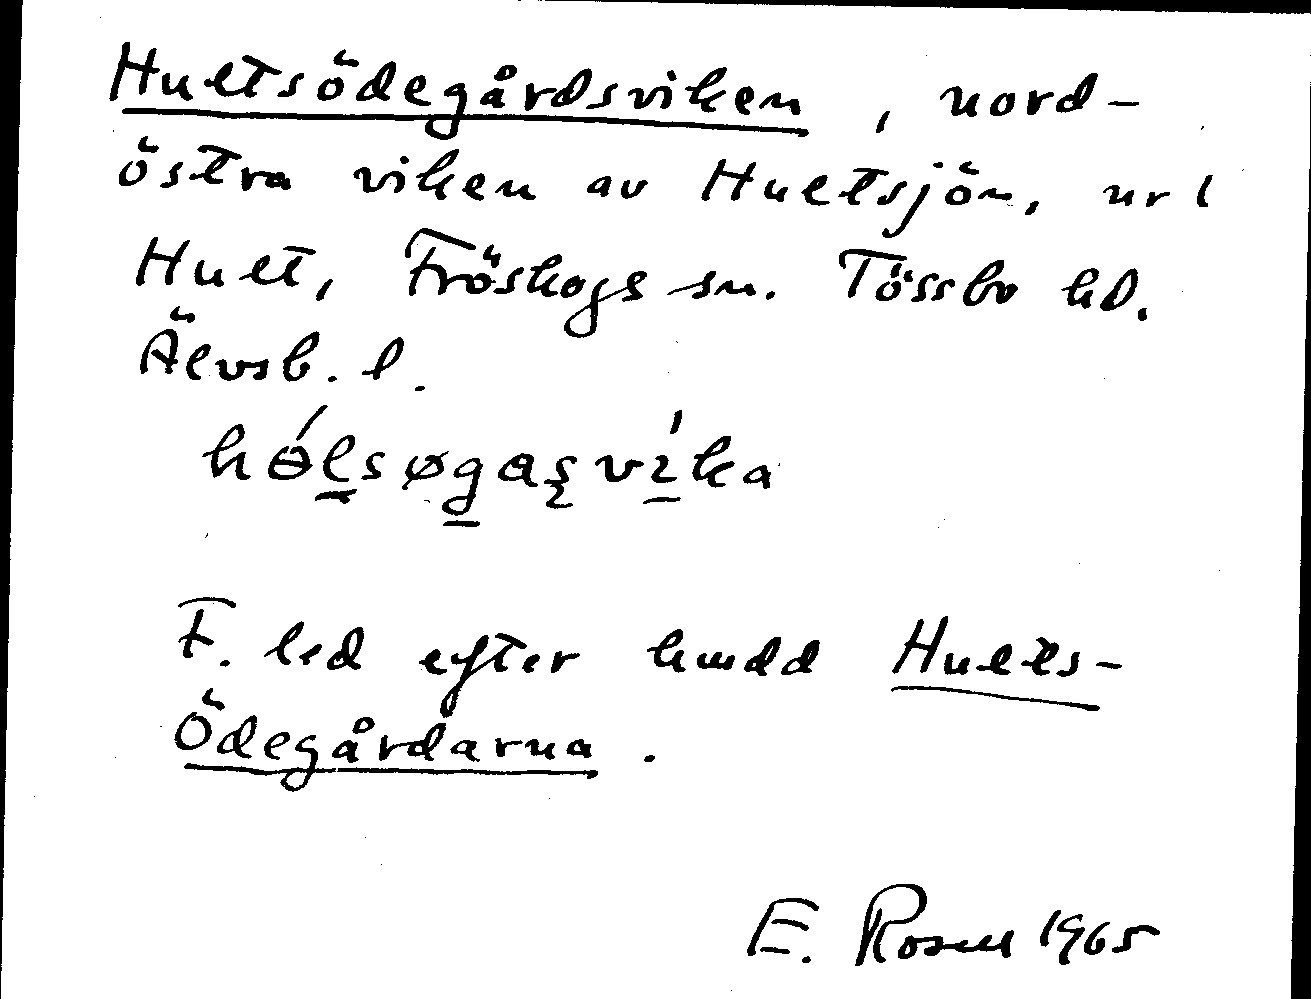 Hultsödegårdsviken, nord-
östra viken av Hultsjön, nr 1
Hult, Fröskogs sn. Tössbo hd.
Älvsb. l.
hǿlsøgaşvika
F. led efter hmdd Hults-
Ödegårdarna.
E. Rosell 1965